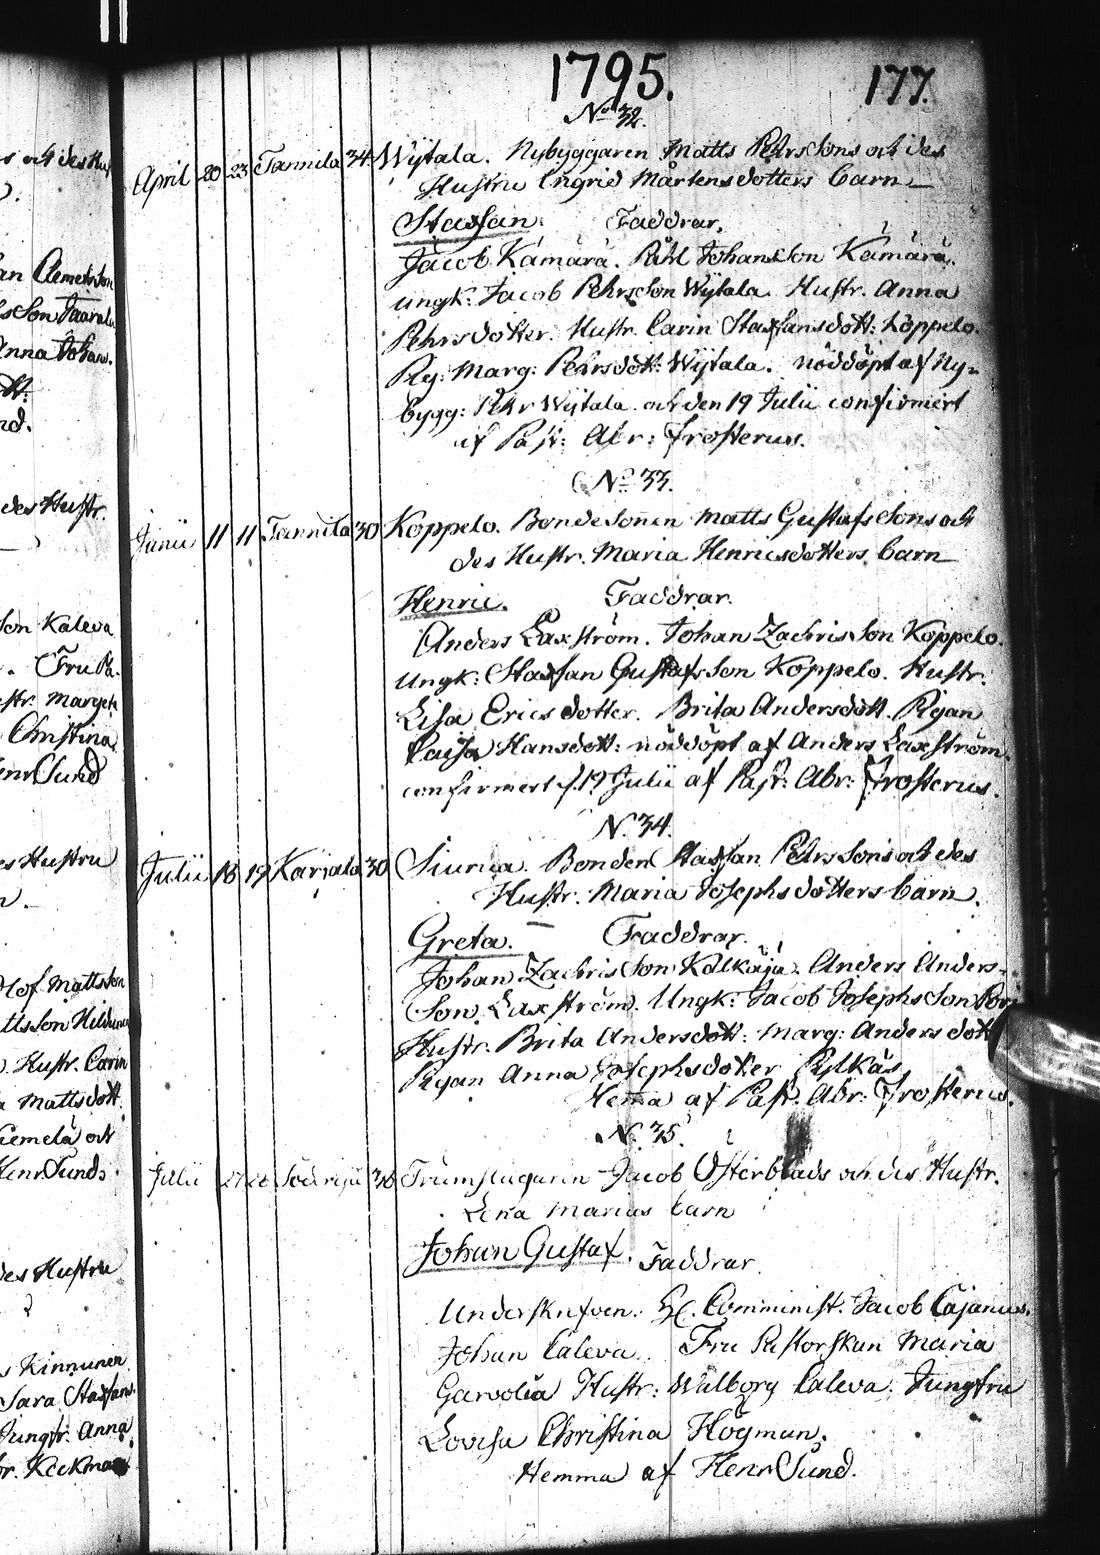 1795.
177.
No 32.
April 20 23 Tannila 34 Wÿtala. Nybyggaren Matts Pehrssons och des
Hustru Ingrid Mårtensdotters barn
Staffan. Faddrar.
Jacob Kämärä. Påhl Johansson Kämärä.
ungk: Jacob Pehrsson Wÿtala. Hustr. Anna
Pehrsdotter. Hustr. Carin Staffansdott: Loppelo.
Pig: Marg: Pehrsdott: Wÿtala. nöddöpt af Ny-
bygg: Pehr Wÿtala och den 19 Julii confirmert
af Past: Abr: Frosterus.
No 33.
Junii 11 11 Tannila 30 Koppelo. Bondesonen Matts Gustafssons och
des Hustr. Maria Henricsdotters barn
Henric. Faddrar.
Anders Laxström. Johan Zachrisson Koppelo.
ungk: Staffan Gustafsson Koppelo. Hustr.
Lisa Ericsdotter. Brita Andersdott. Pigan
Caisa Hansdott: nöddöpt af Anders Laxström
confirmert d. 19 Julii af Past: Abr: Frosterus.
No 34.
Julii 18 19 Karjala 30 Siurua. Bonden Staffan Pehrssons och des
Hustr. Maria Josephsdotters barn.
Greta. Faddrar.
Johan Zachrisson Kälkäjä. Anders Anders-
Son Laxström. Ungk: Jacob Josephsson
Hustr. Brita Andersdott: Marg: Andersdott
Pigan Anna Josephsdotter Pylkäs
Hema af Past. Abr: Frosterus.
No 35.
Julii 27 28 36 Trumslagaren Jacob Österblads och des Hustr.
Lena Marias barn
Johan Gustaf. Faddrar.
Underskrifven. Comminist. Jacob Cajanus.
Johan Caleva. Fru Pastorskan Maria
Garvolia Hustr: Walborg Caleva. Jungfru
Lovisa Christina Högman.
Hemma af Henr Sund.
och des Hust
Clemetsson
sson
Anna Johans.
des Hustr.
son Kaleva
Fru Pa.
str. Margeta
Christina
Henr Sund
es Hustru
Olof Mattsson
Hustr. Carin
a Mattsdott.
och
Henr Sund.
des Hustru
s Kinnunen
Sara Staffans.
Jungfr. Anna